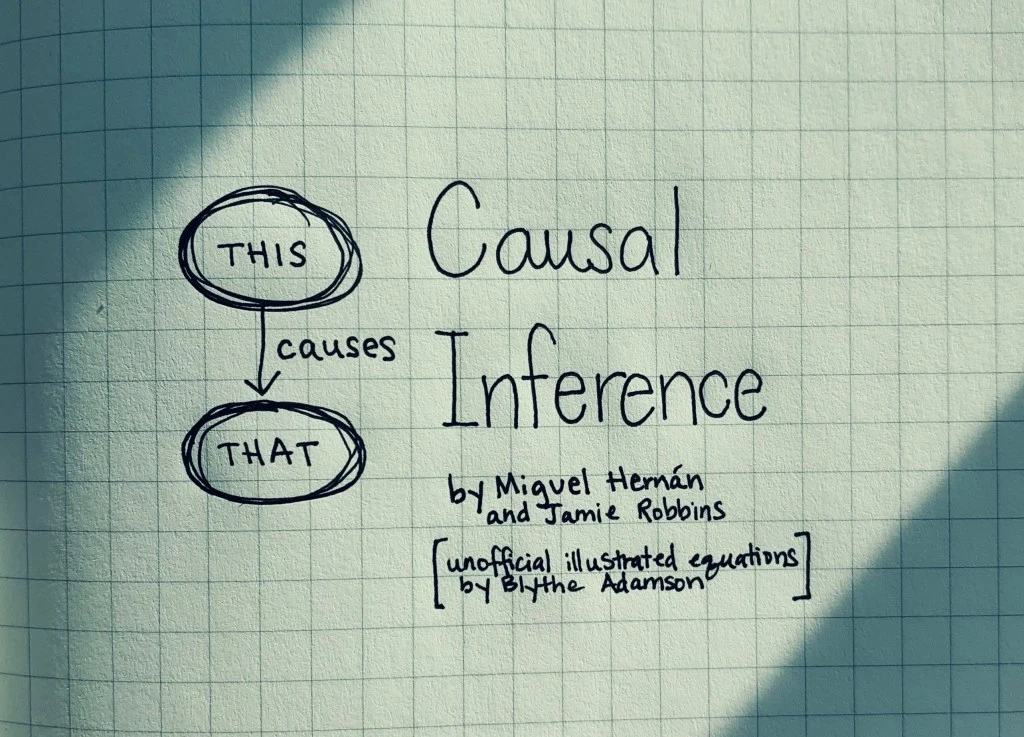 THIS
causes
THAT
Causal
Inference
by Miguel Hernán
and Jamie Robbins
[unofficial illustrated equations
by Blythe Adamson]